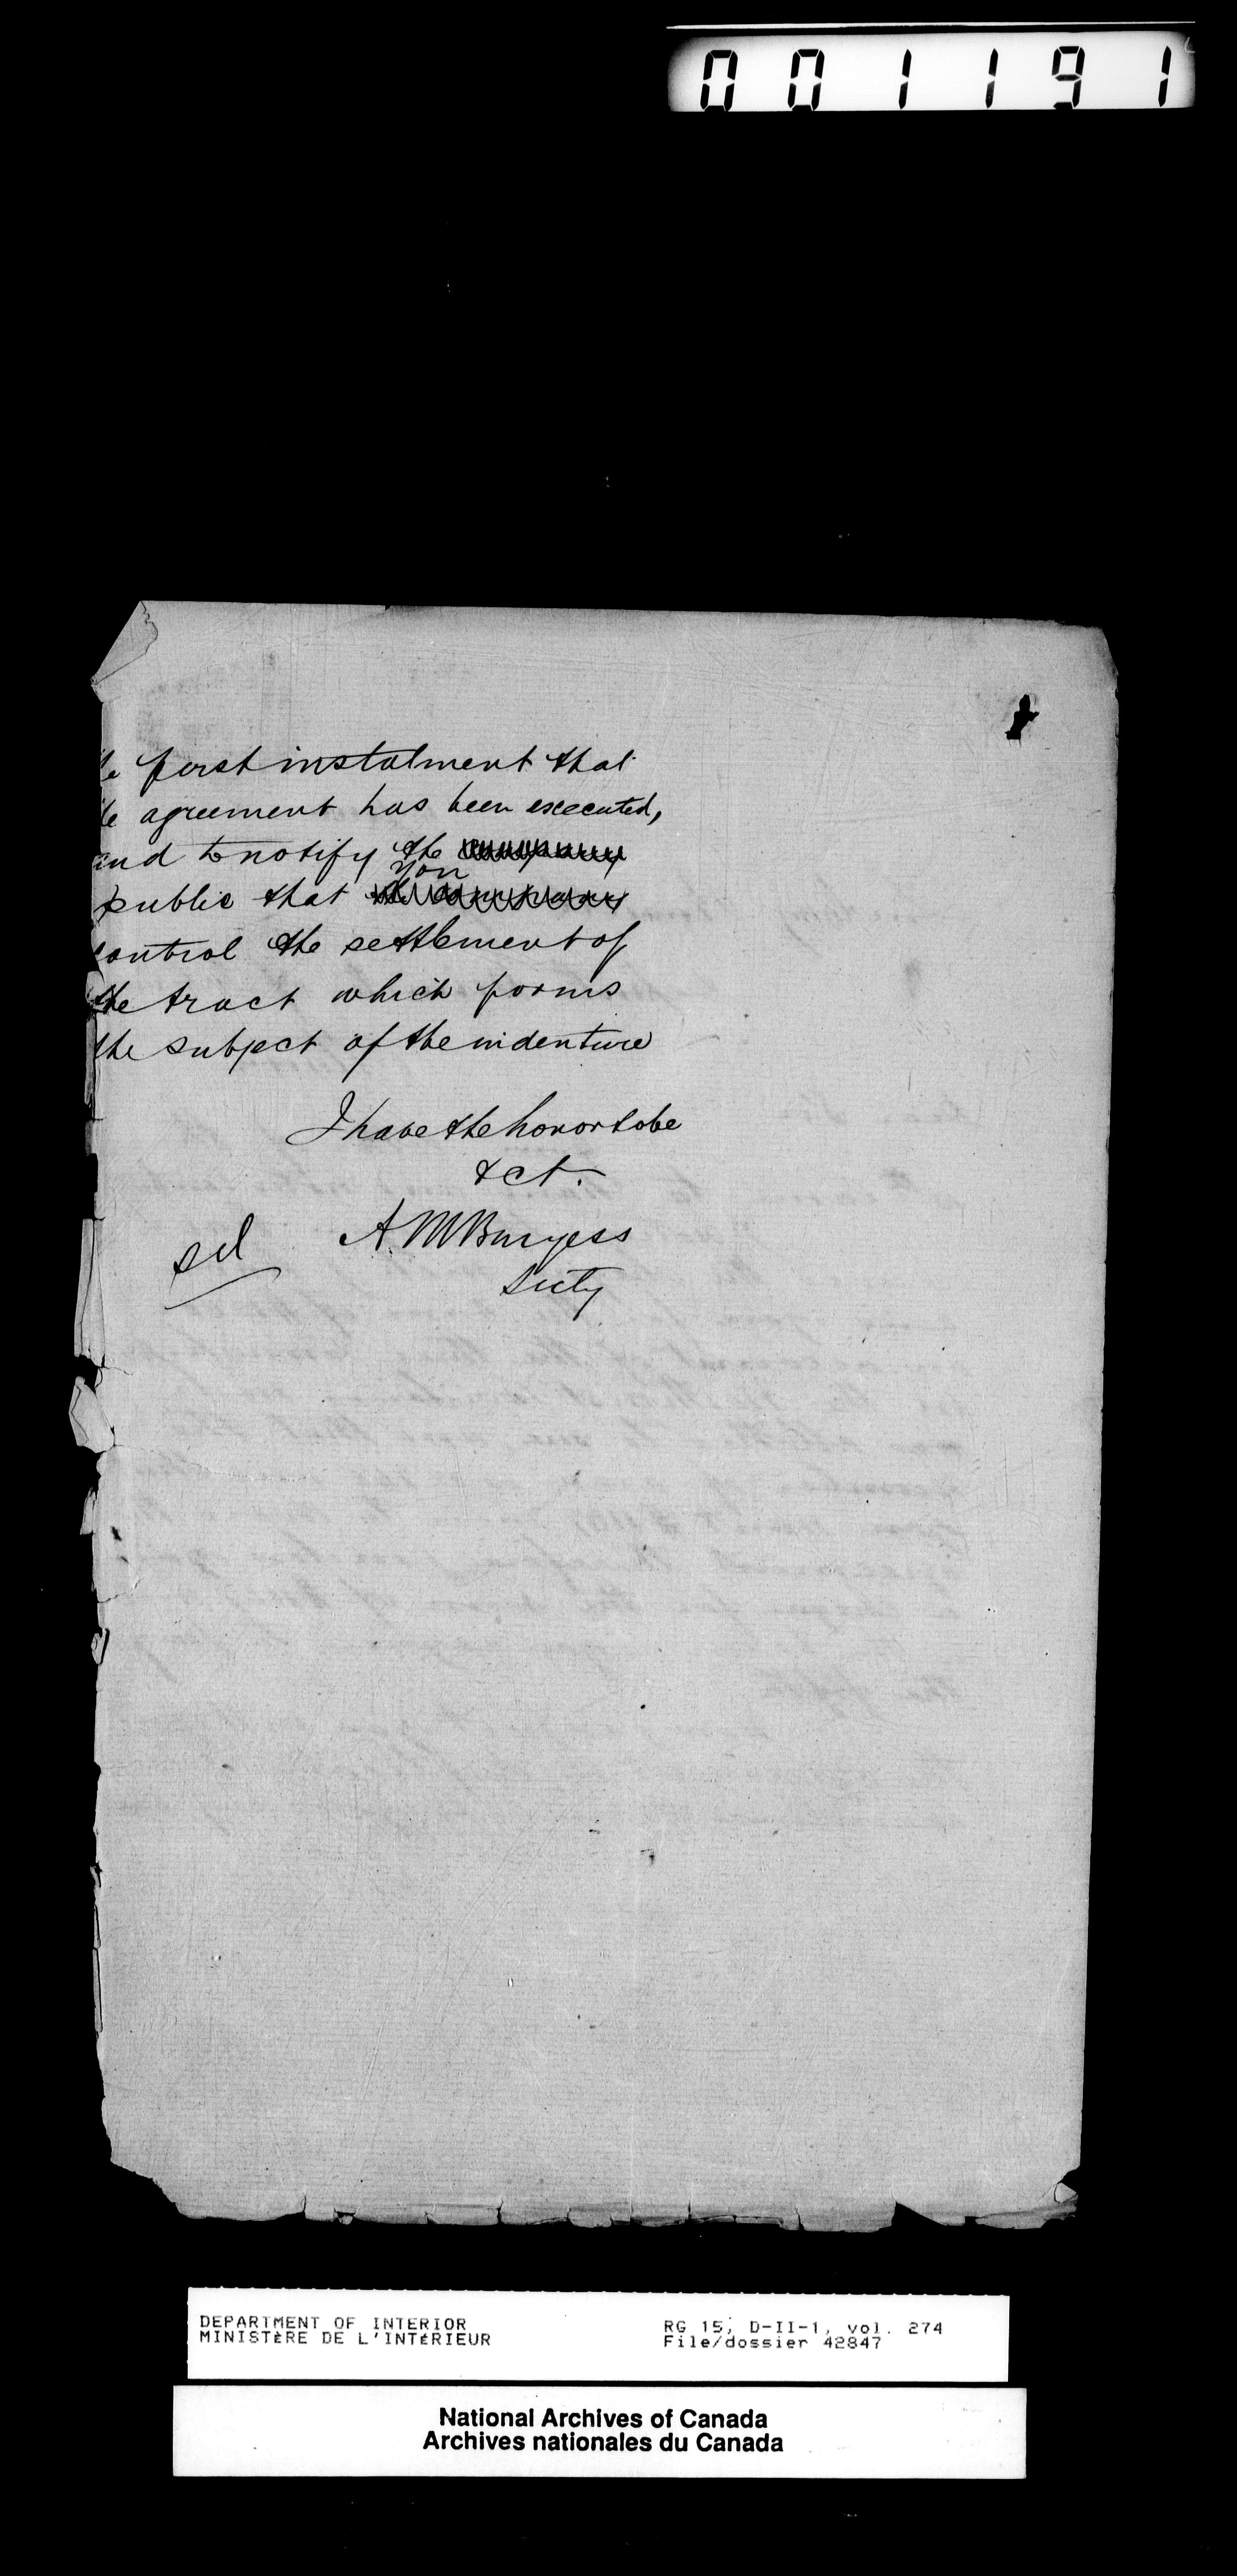 001191
first instalment that
agreement has been executed,
and to notify the company
you
public that the company
control the settlement of
the tract which forms
the subject of the indenture
I have the honor to be
&ct.
sd A. M Burgess
Secty
DEPARTMENT OF INTERIOR
MINISTÈRE DE L'INTÉRIEUR
RG 15, D-II-1, vol. 274
File/dossier 42847
National Archives of Canada
Archives nationales du Canada